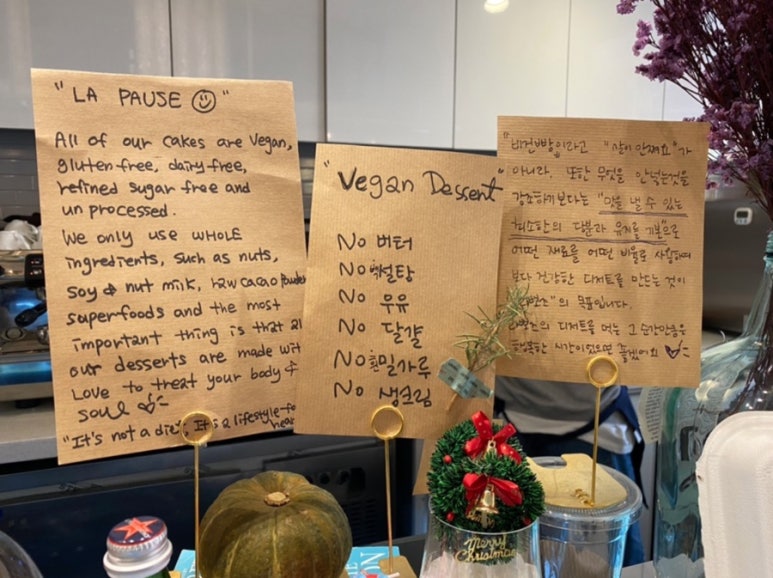 "LA PAUSE ☺"
All of our cakes are Vegan,
gluten-free, dairy-free,
refined sugar free and
unprocessed.
We only use WHOLE
ingredients, such as nuts,
soy & nut milk, raw cacao powder
superfoods and the most
important thing is that all
our desserts are made with
Love to treat your body &
soul
"It's not a diet; It's a lifestyle-
"Vegan Dessert"
No 버터
No 백설탕
No 우유
No 달걀
No 흰밀가루
No 생크림
"비건빵이라고 "살이 안쪄요"가
아니라, 또한 무엇을 안넣는것을
강조하기 보다는 "맛을 낼 수 있는
최소한의 당분과 유지를 기본"으로
어떤 재료를 어떤 비율로 사용하여
보다 건강한 디저트를 만드는 것이
"의 목표입니다.
디저트를 먹는 그 순간만큼은
행복한 시간이었으면 좋겠어요
Merry
Christmas